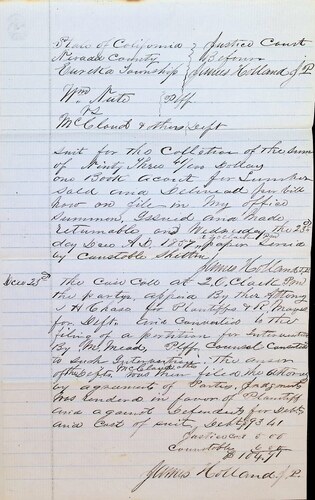 State of California } Justice Court
Nevada County } Before
Eureka Township } James Holland J.P.
Wm Nute } Plff
vs
McCloud & others Deft
Suit for the Collection of the sum
of Ninty Three 41/100 Dollars
one Book acount for Lumber
sold and Delivead per bill
now on file in my office
Summon, Issued and made
returnable on Wednesday the 23d
day Dec A.D. 1857, papers servid
by Constable Shelton
James Holland J.P.
Dec 23d The Case Call at 2 O,Clock P.M
the partys appeard By ther Attorny
for Plantiffs &
for Defts and
filing of a petition for Intervention
By Mr Mead, Plffs Counsel
to such Intervention. The answer
of the Defts McCloud & others was then filed the Attorny
by agreament of Parties, Judgment
was rendred in favor of Plantiff
and against Defendents for Debt
and Cost of suit, Debt $93.41
Justices Cost 5.00
Constables 6.00
$104.91
James Holland J.P.